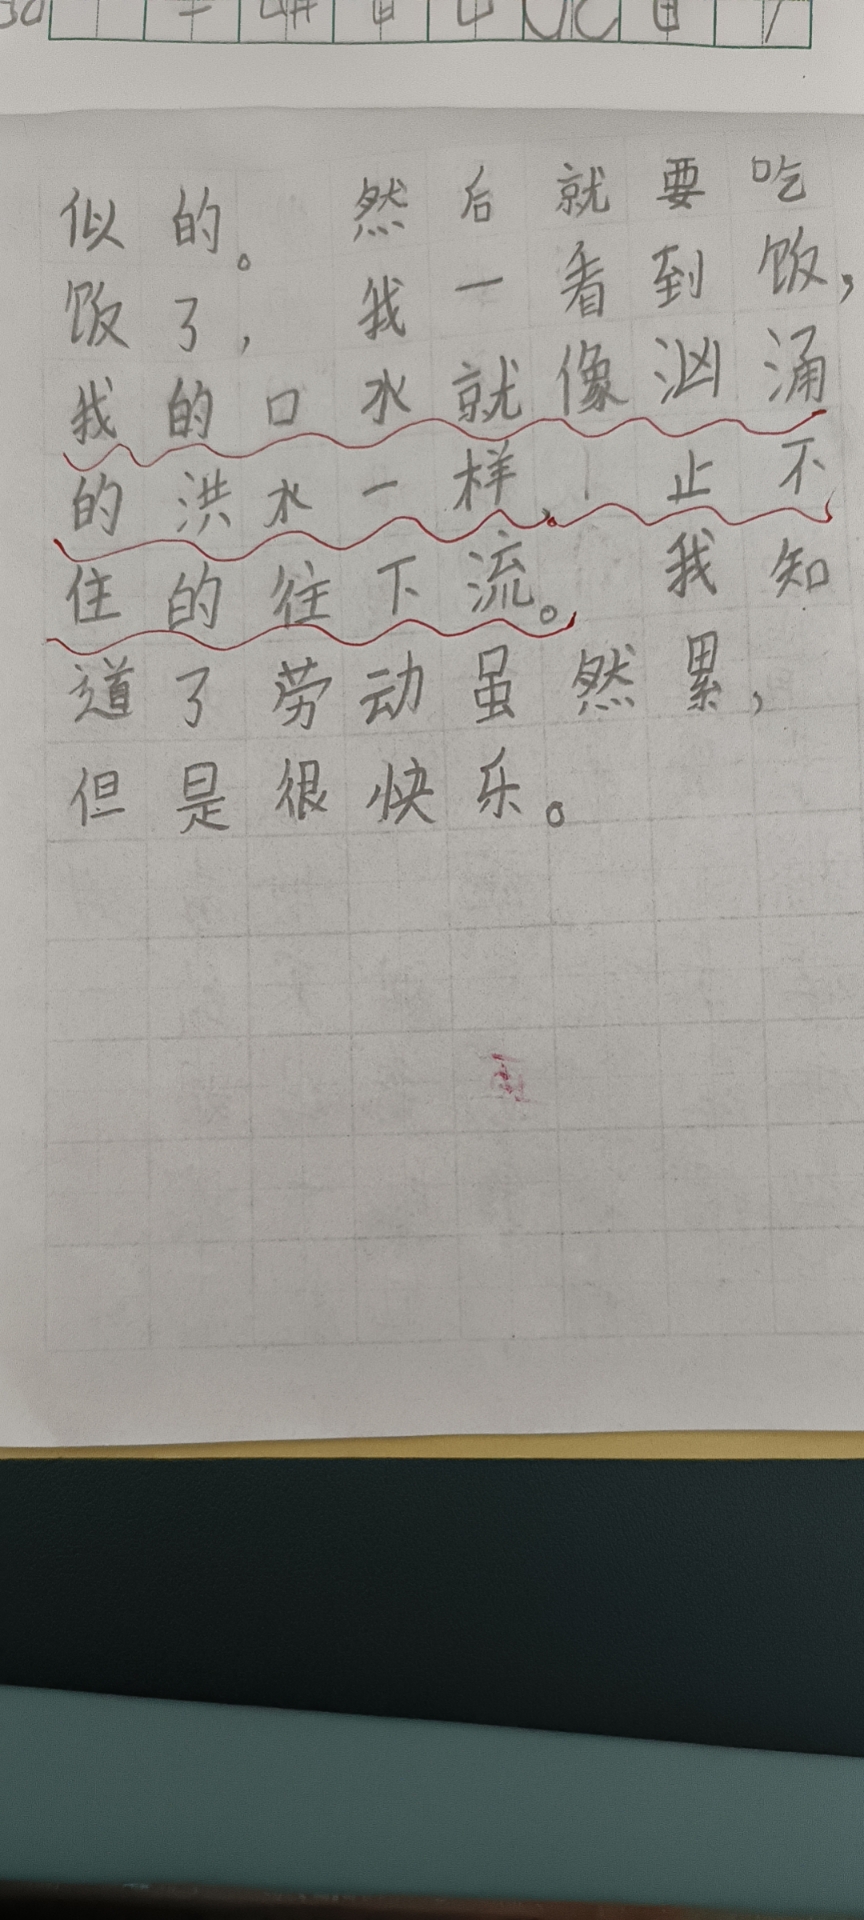 似的。 然后就要吃
饭了， 我一看到饭，
我的口水就像汹涌
的洪水一样， 止不
住的往下流。 我知
道了劳动虽然累，
但是很快乐。